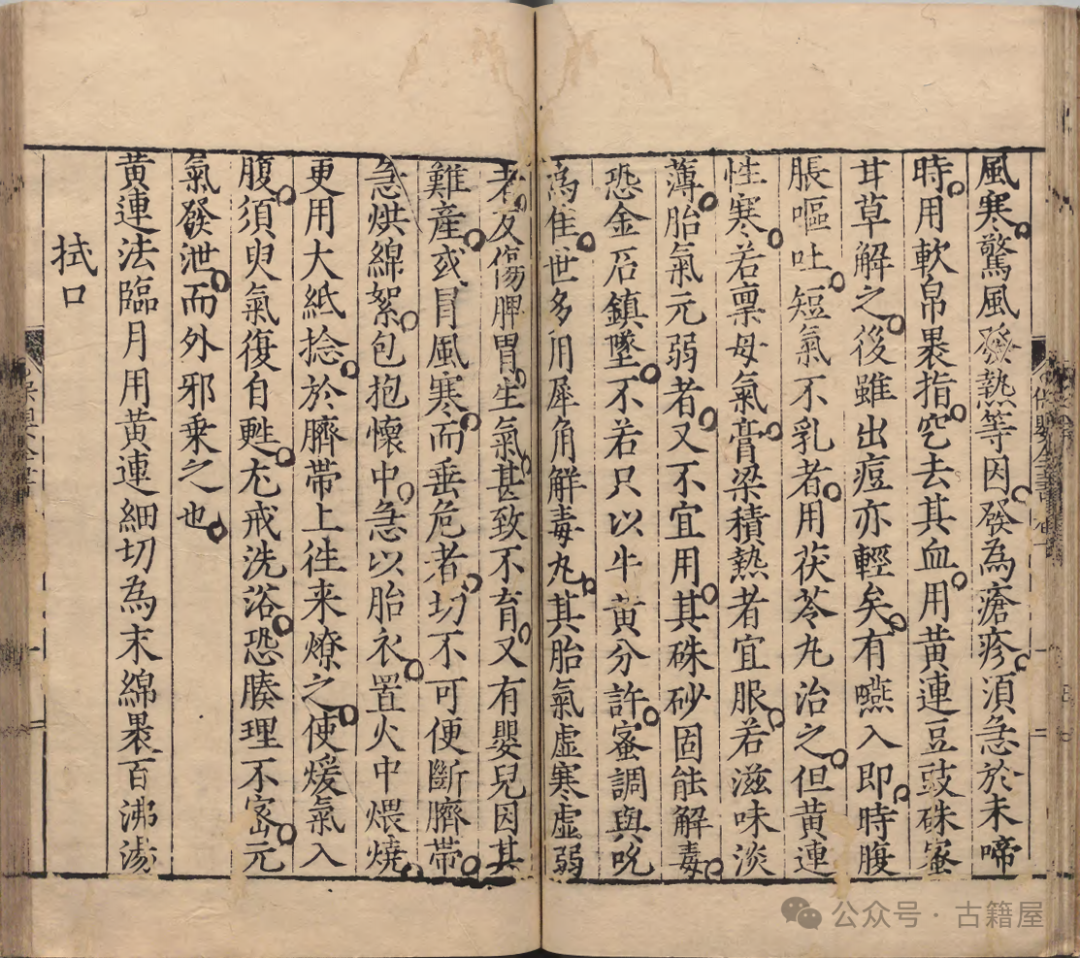 風寒驚風發熱等因發為瘡疹須急於未啼
時用軟帛裹指空去其血用黃連豆豉硃蜜
甘草解之後雖出痘亦輕矣有嚥入即時腹
脹嘔吐短氣不乳者用茯苓丸治之但黃連
性寒若稟母氣膏粱積熱者宜服若滋味淡
薄胎氣元弱者又不宜用其硃砂固能解毒
恐金石鎮墜不若只以牛黃分許蜜調與吮
為佳世多用犀角解毒丸其胎氣虛寒虛弱
者反傷脾胃生氣甚致不育又有嬰兒因其
難產或冒風寒而垂危者切不可便斷臍帶
急烘綿絮包抱懷中急以胎衣置火中煨燒
更用大紙捻於臍帶上徃来燎之使煖氣入
腹須臾氣復自甦尤戒洗浴恐腠理不密元
氣發泄而外邪乘之也
拭口
黃連法臨月用黃連細切為末綿裹百沸湯
保嬰全書
公众号·古籍屋